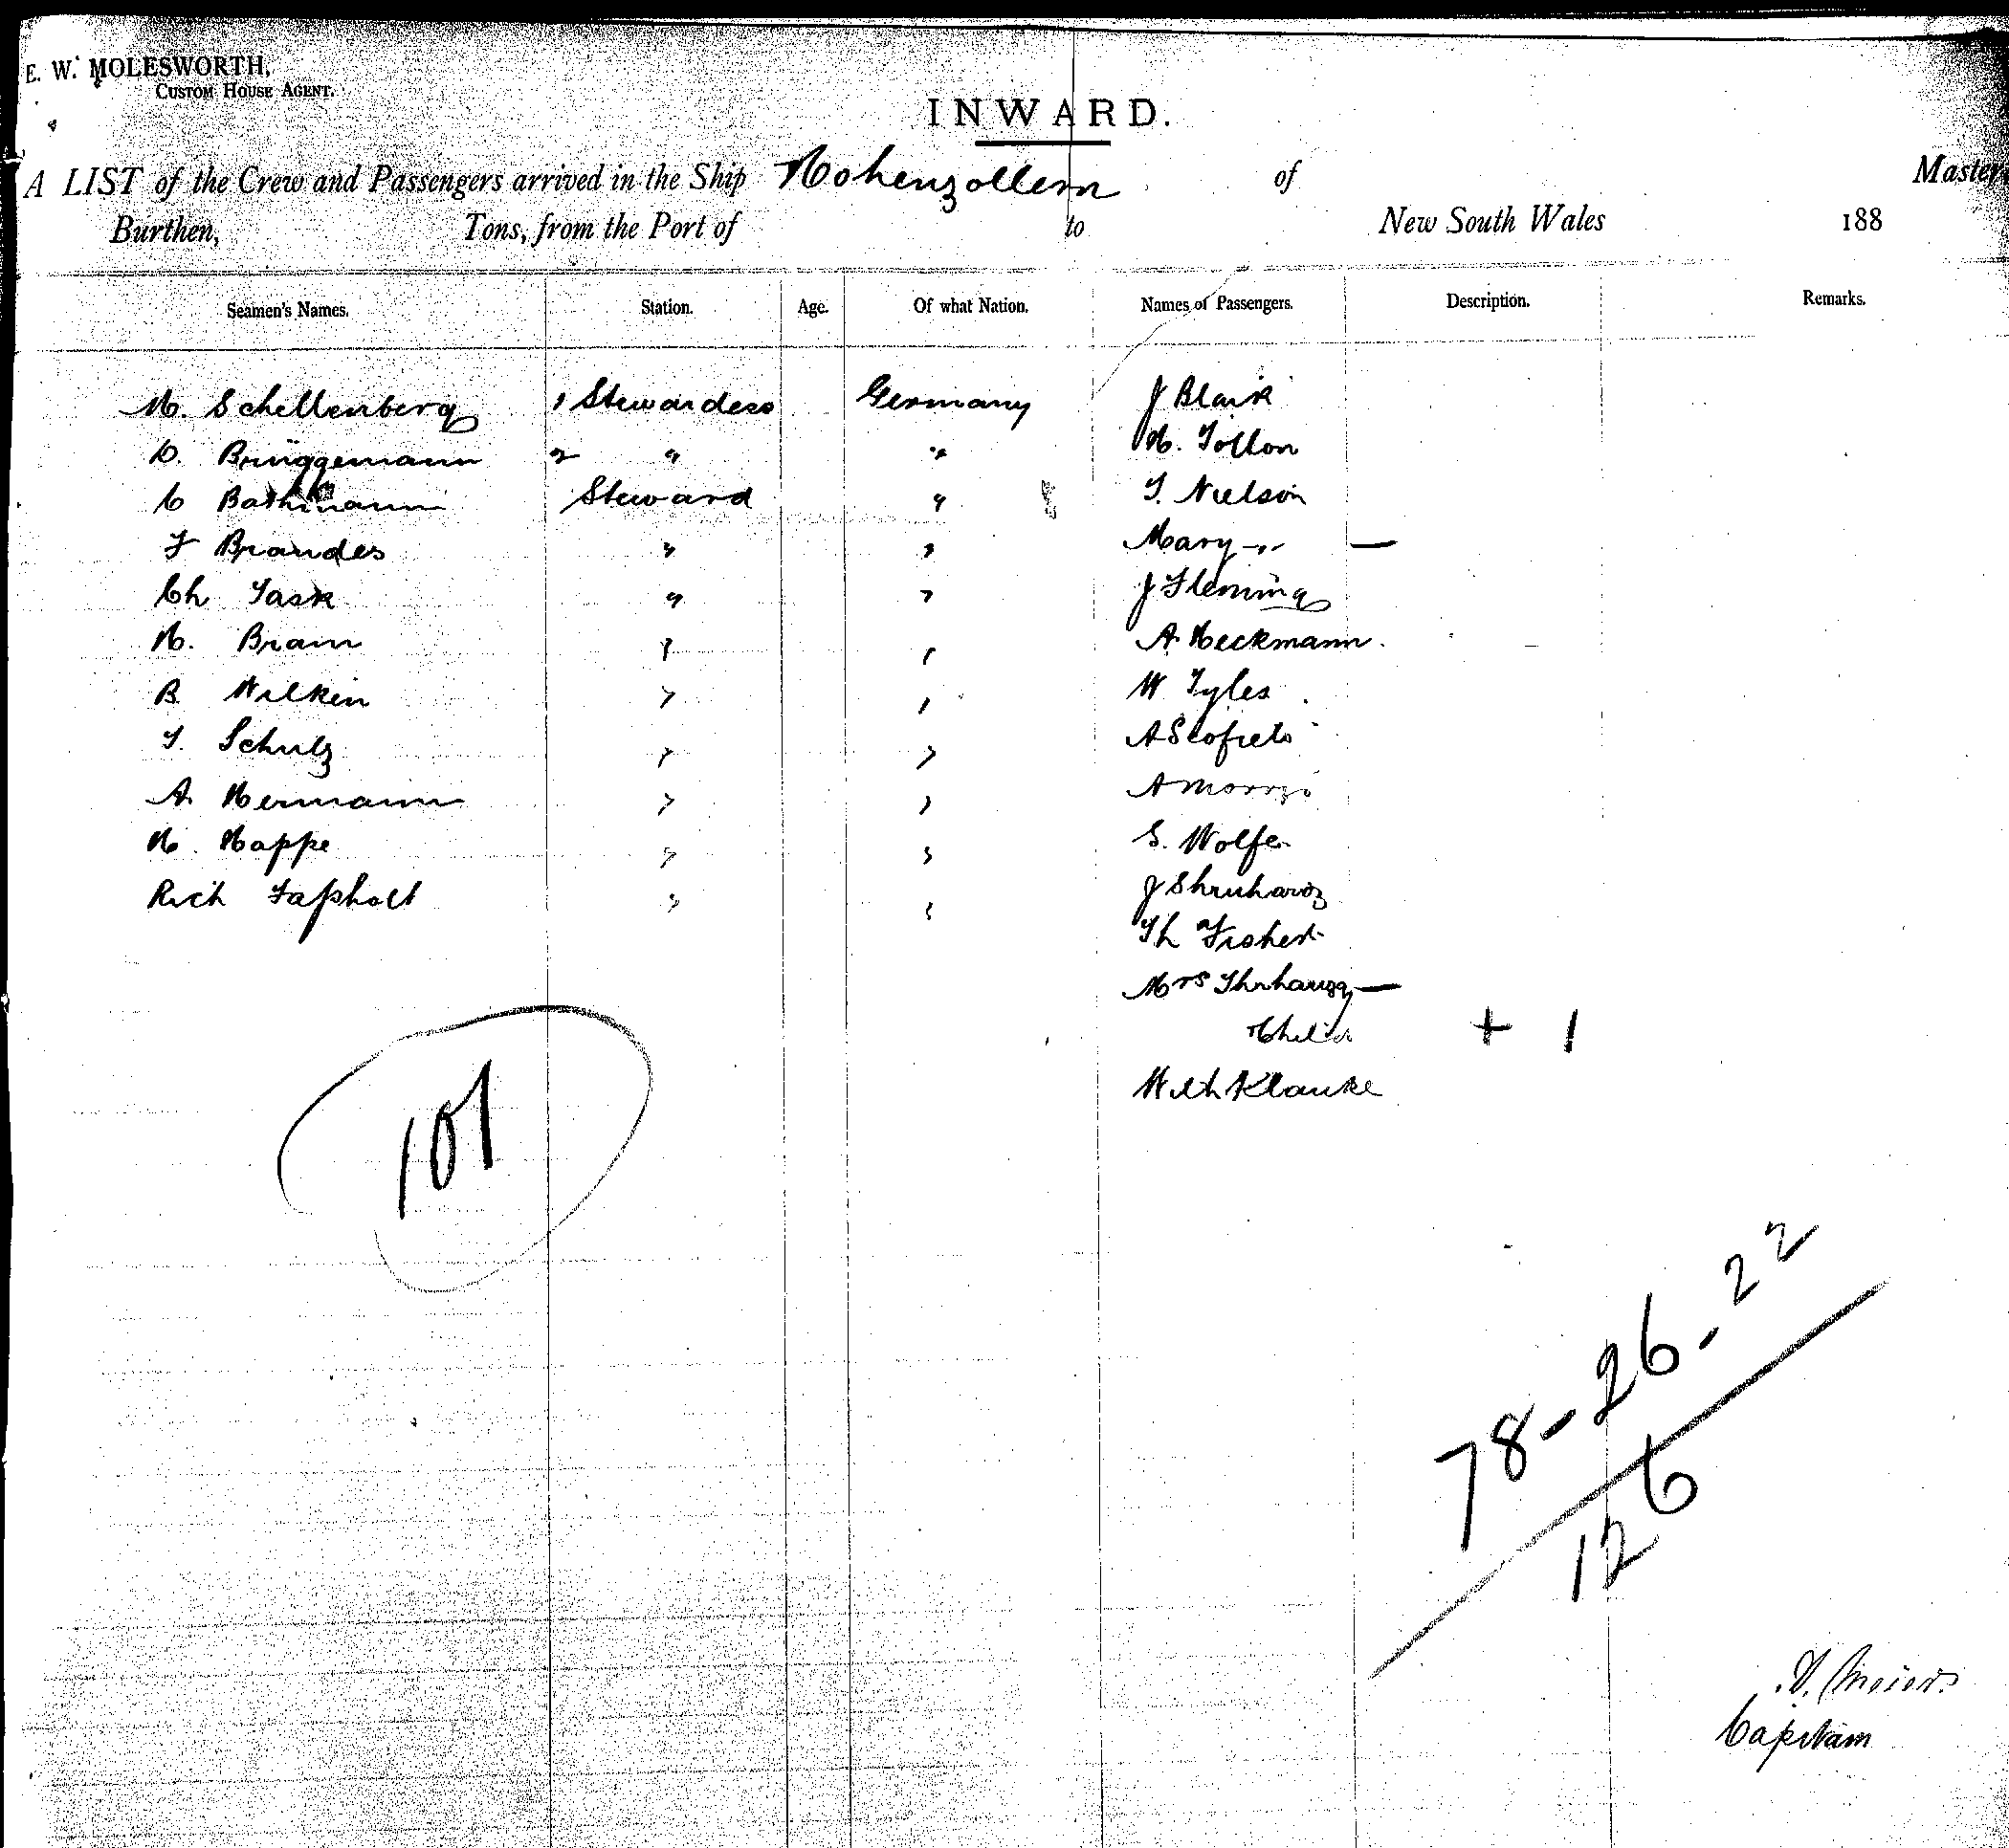 E. W. MOLESWORTH,
CUSTOM HOUSE AGENT.
INWARD.
A LIST of the Crew and Passengers arrived in the Ship Hohenzollern of Master
Burthen, Tons, from the Port of to New South Wales 188
Seamen's Names. Station. Age. Of what Nation. Names of Passengers. Description. Remarks.
M. Schellenberg 1 Stewardess Germany J Blark
D. Brüggemann 2 " " H. Tollon
C Bathmann Steward " T. Nielson
F Brandes " " Mary -"- —
Ch Task " " J Fleming
H. Bram " " A. Heckmann.
B Wilken " " W Tyles
T. Schulz " " A Scofield
A. Hermann " " A
H. Happe " " S. Wolfe
Rich " " J
Th Fisher
Mrs —
Child + 1
Wilh Klauke
101
78-26-22
126
Meier
Capitain